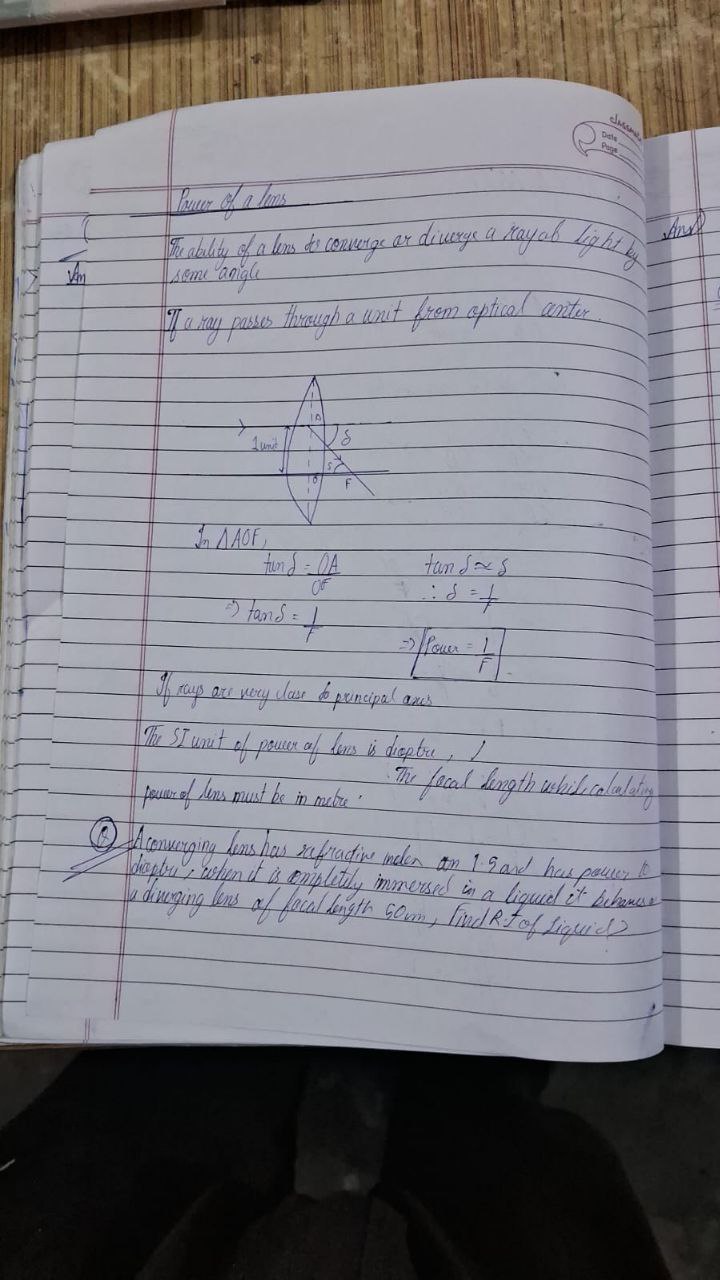 classmate
Date
Page
Power of a lens
The ability of a lens to converge or diverge a ray of light by
some angle
If a ray passes through a unit from optical center.
A
δ
1 unit
δ
O
F
In ΔAOF,
tan δ = OA/OF
tan δ ≈ δ
∴ δ = 1/F
=> tan δ = 1/F
=> Power = 1/F
If rays are very close to principal axis
The SI unit of power of lens is dioptre,
The focal length while calculating
power of lens must be in metre.
Q
A converging lens has refractive index 1.5 and has power
dioptre, when it is completely immersed in a liquid it behaves
a diverging lens of focal length 50 cm, Find R.I of liquid?
An
Ans